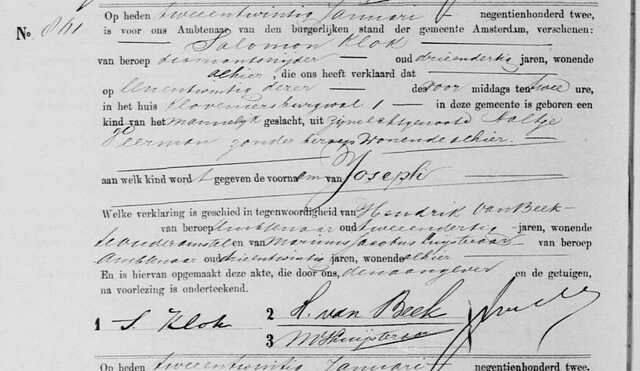 Op heden tweeentwintig Januari negentienhonderd twee,
No. 861 is voor ons Ambtenaar van den burgerlijken stand der gemeente Amsterdam, verschenen:
Salomon Klok
van beroep diamantsnijder oud drieendertig jaren, wonende
alhier, die ons heeft verklaard dat
op eenentwintig dezer des voor middags ten twee ure,
in het huis Kloveniersburgwal 1 in deze gemeente is geboren een
kind van het mannelijk geslacht, uit zijne echtgenoote Aaltje
Peerman zonder beroep wonende alhier.
aan welk kind wordt gegeven de voornaam van Joseph
Welke verklaring is geschied in tegenwoordigheid van Hendrik van Beek
van beroep Ambtenaar oud tweeendertig jaren, wonende
te ouderamstel en van Marinus Jacobus Kuijsteraar van beroep
Ambtenaar oud drieentwintig jaren, wonende alhier
En is hiervan opgemaakt deze akte, die door ons, den aangever en de getuigen,
na voorlezing is onderteekend.
1 S. Klok 2 H. van Beek
3
Op heden tweeentwintig Januari negentienhonderd twee,